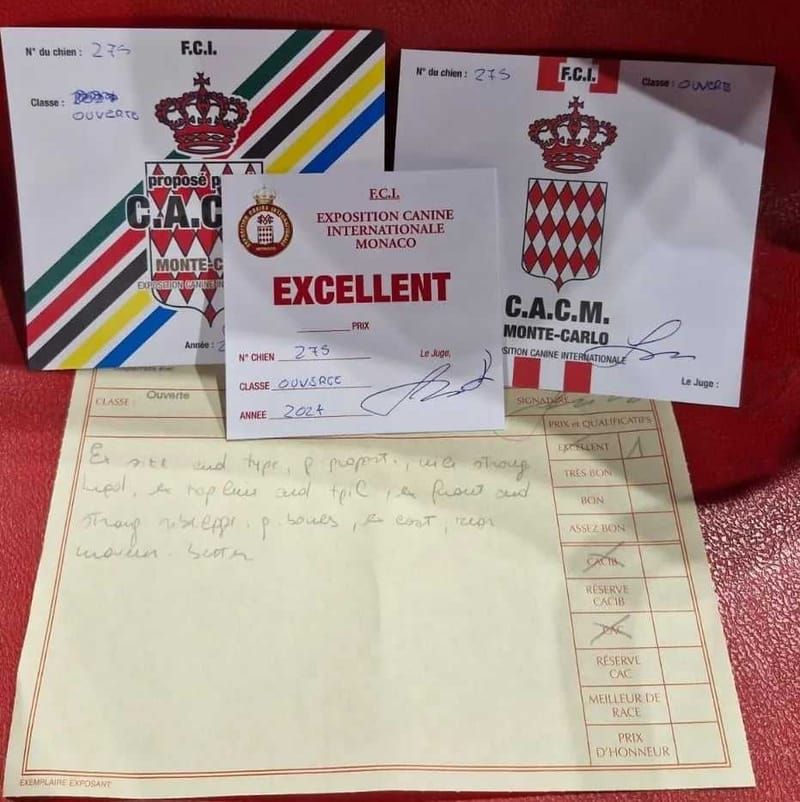 N° du chien : 275
F.C.I.
Classe :
OUVERTE
proposé p
C.A.C
MONTE-C
EXPOSITION CANINE IN
Année : 2
N° du chien : 275
F.C.I.
Classe : OUVERTE
C.A.C.M.
MONTE-CARLO
SITION CANINE INTERNATIONALE
Le Juge :
EXPOSITION CANINE INTERNATIONALE
MONACO
F.C.I.
EXPOSITION CANINE
INTERNATIONALE
MONACO
EXCELLENT
PRIX
N° CHIEN 275
Le Juge,
CLASSE OUVERTE
ANNEE 2024
CLASSE : Ouverte
SIGNATURE
PRIX et QUALIFICATIFS
EXCELLENT 1
TRÈS BON
BON
ASSEZ BON
CACIB
RÉSERVE
CACIB
CAC
RÉSERVE
CAC
MEILLEUR DE
RACE
PRIX
D'HONNEUR
Ex size and type, p proport., nice strong
head, ex topline and tail, ex front and
strong p. bones, ex coat,
mover. better
EXEMPLAIRE EXPOSANT